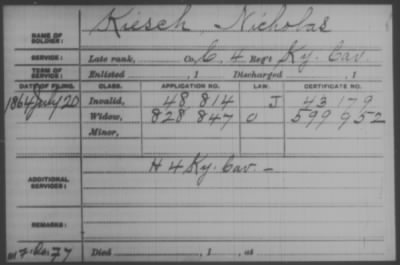 NAME OF SOLDIER: Kiesch, Nicholas
SERVICE: Late rank, Co. C. 4 Reg't Ky. Cav.
TERM OF SERVICE: Enlisted , 1 Discharged , 1
DATE OF FILING. CLASS. APPLICATION NO. LAW. CERTIFICATE NO.
1864 July 20 Invalid, 48 814 J 43 179
Widow, 828 847 O 599 952
Minor,
ADDITIONAL SERVICES: H 4 Ky. Cav. –
REMARKS:
77 Died , 1 , at